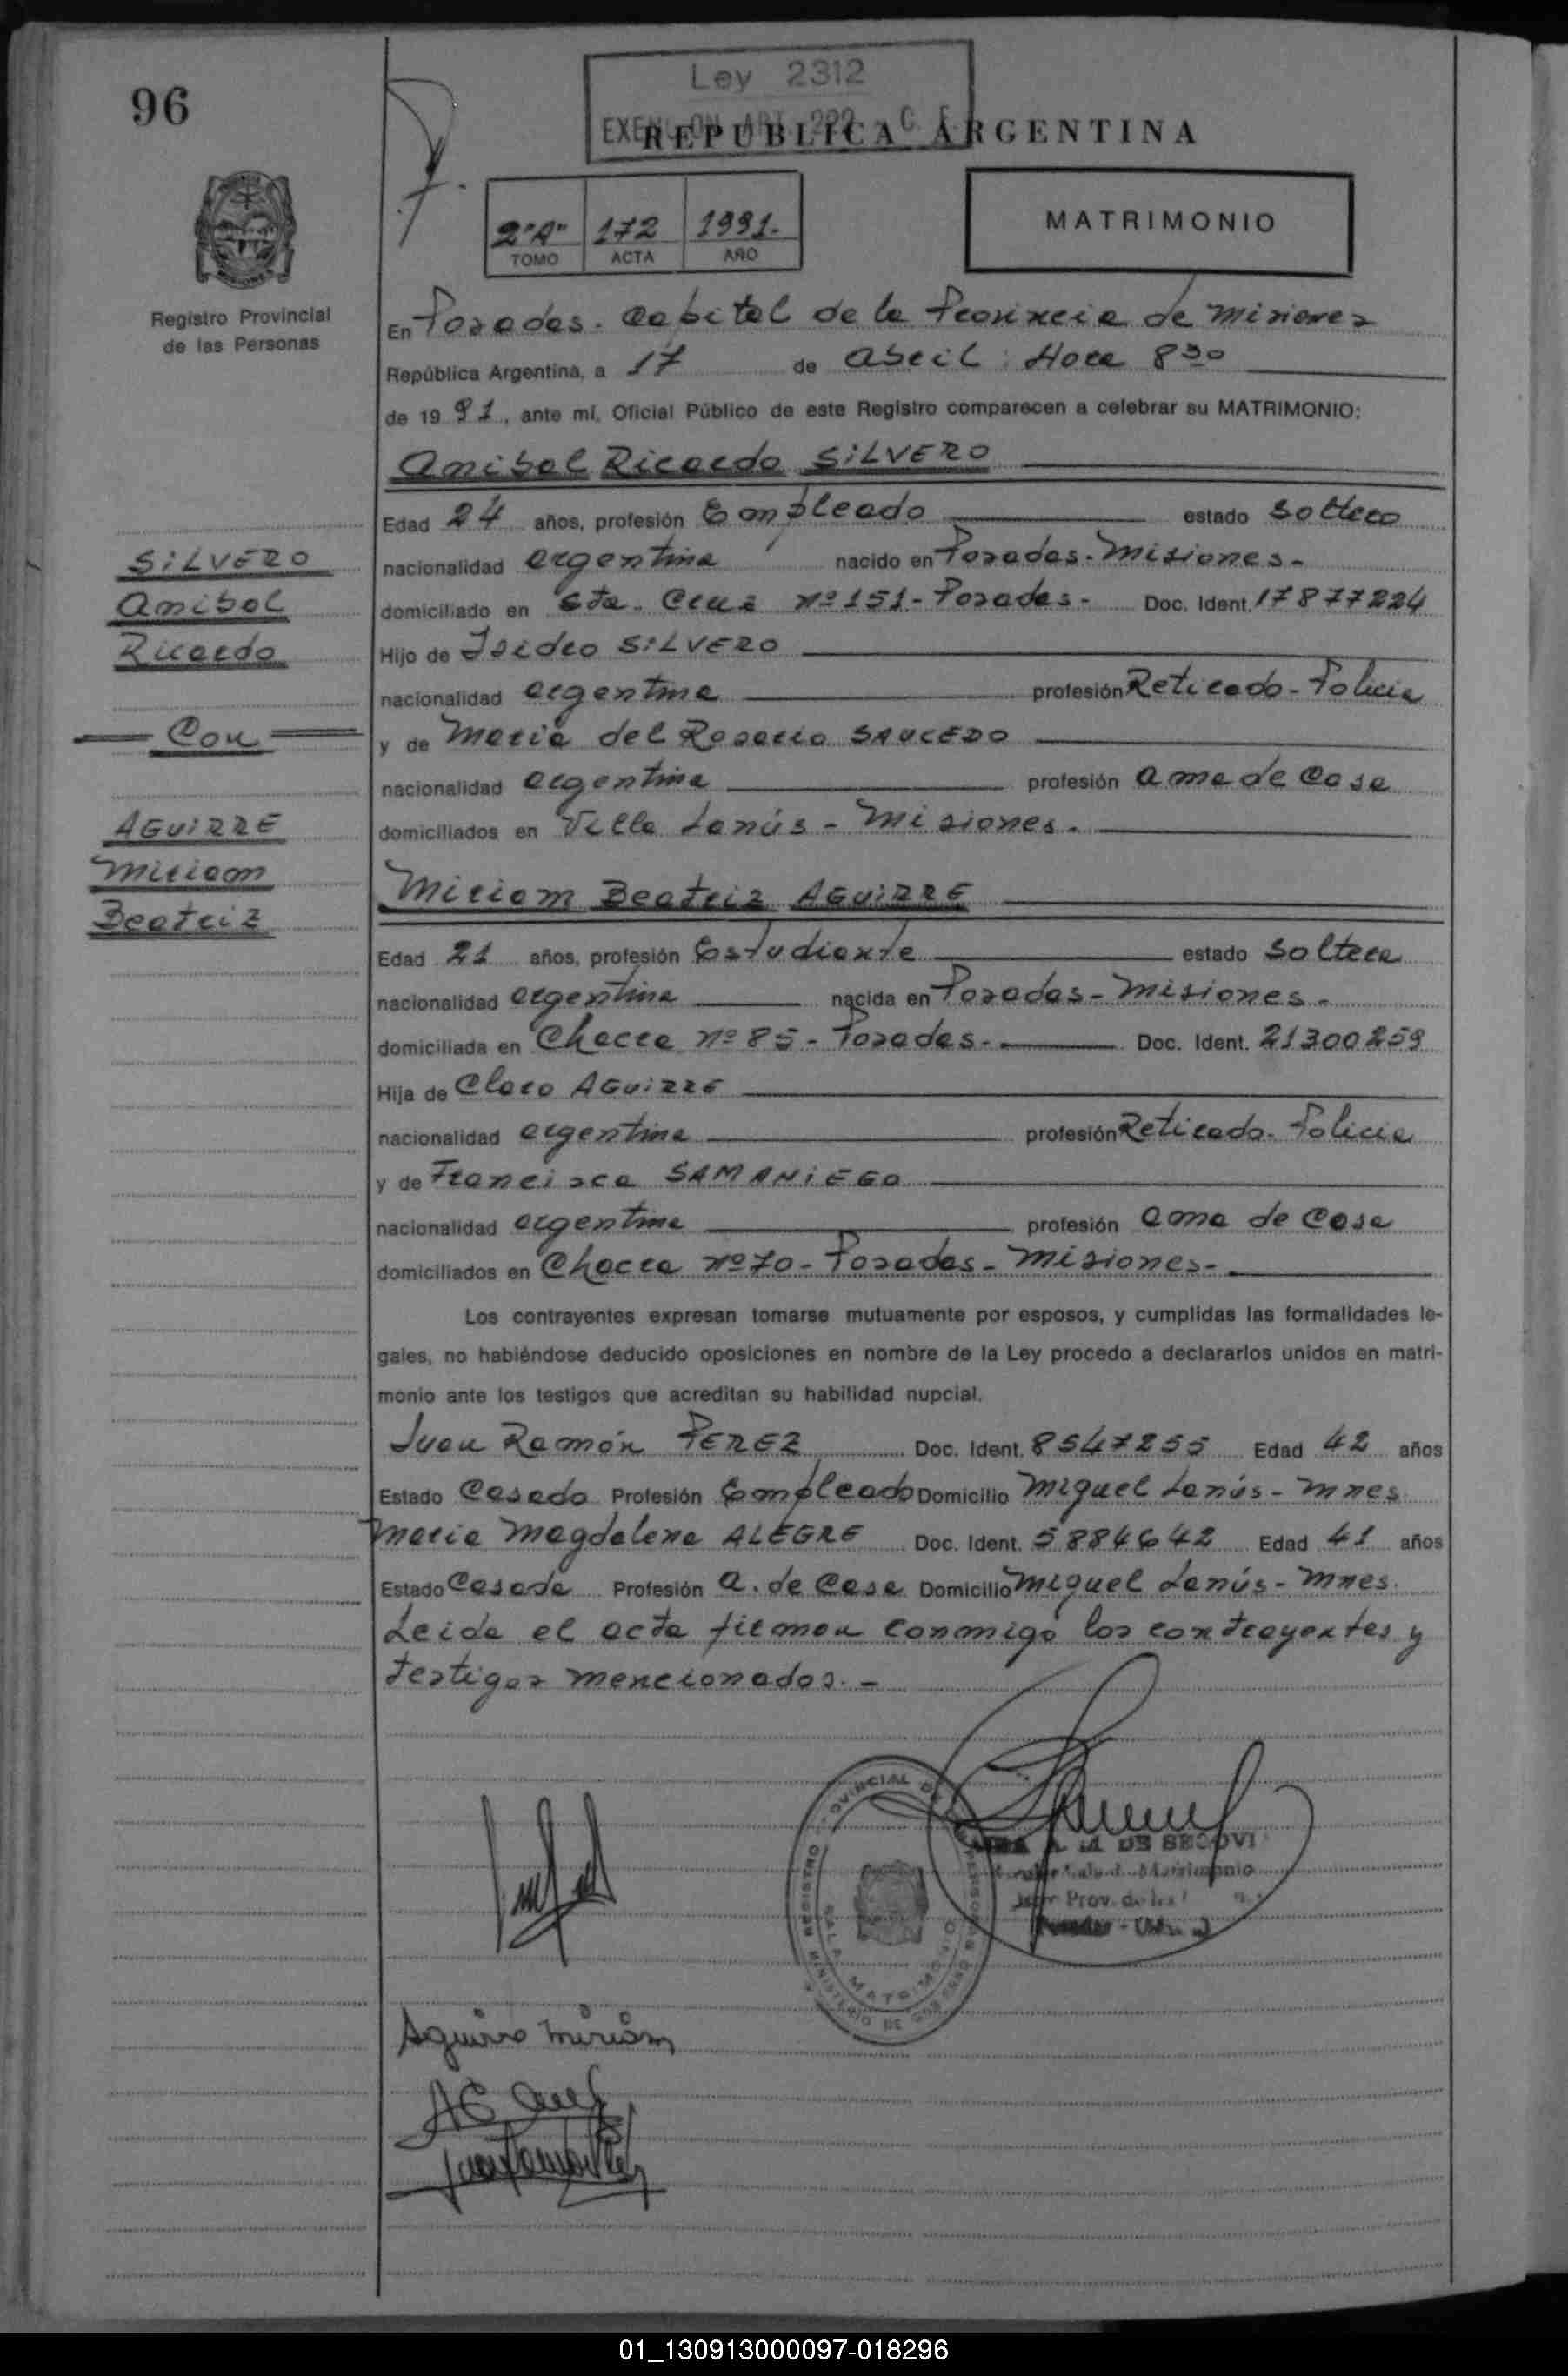 96
Ley 2312
REPUBLICA ARGENTINA
2"A" 172 1991.
TOMO ACTA AÑO
MATRIMONIO
Registro Provincial
de las Personas
En Posadas. Capital de la Provincia de Misiones
República Argentina, a 17 de Abril: Hora 8 30
de 1991, ante mí, Oficial Público de este Registro comparecen a celebrar su MATRIMONIO:
Anibal Ricardo SILVERO
Edad 24 años, profesión Empleado estado Soltero
nacionalidad argentina nacido en Posadas-Misiones-
domiciliado en Sta. Cruz nº 151-Posadas- Doc. Ident. 17877224
Hijo de Isidro SILVERO
nacionalidad argentina profesión Retirado-Policia
y de Maria del Rosario SAUCEDO
nacionalidad argentina profesión ama de Casa
domiciliados en Villa Lanús - Misiones.
SILVERO
Anibal
Ricardo
Con
AGUIRRE
Miriam
Beatriz
Miriam Beatriz AGUIRRE
Edad 21 años, profesión Estudiante estado Soltera
nacionalidad argentina nacida en Posadas-Misiones-
domiciliada en Chacra nº 85 - Posadas- Doc. Ident. 21300259
Hija de Claro AGUIRRE
nacionalidad argentina profesión Retirado-Policia
y de Francisca SAMANIEGO
nacionalidad argentina profesión ama de Casa
domiciliados en Chacra nº 70-Posadas-Misiones-
Los contrayentes expresan tomarse mutuamente por esposos, y cumplidas las formalidades le-
gales, no habiéndose deducido oposiciones en nombre de la Ley procedo a declararlos unidos en matri-
monio ante los testigos que acreditan su habilidad nupcial.
Juan Ramón PEREZ Doc. Ident. 8547255 Edad 42 años
Estado Casado Profesión Empleado Domicilio Miguel Lanús-Mnes
Maria Magdalena ALEGRE Doc. Ident. 5884642 Edad 41 años
Estado Casada Profesión A. de Casa Domicilio Miguel Lanús-Mnes.
Leida el acta firman conmigo los contrayentes y
testigos mencionados.-
REGISTRO PROVINCIAL DE LAS PERSONAS
MINISTERIO DE GOBIERNO
SALA MATRIMONIO
DE SEGOVI
Matrimonio
Prov. de las
Aguirre Miriam
01_130913000097-018296